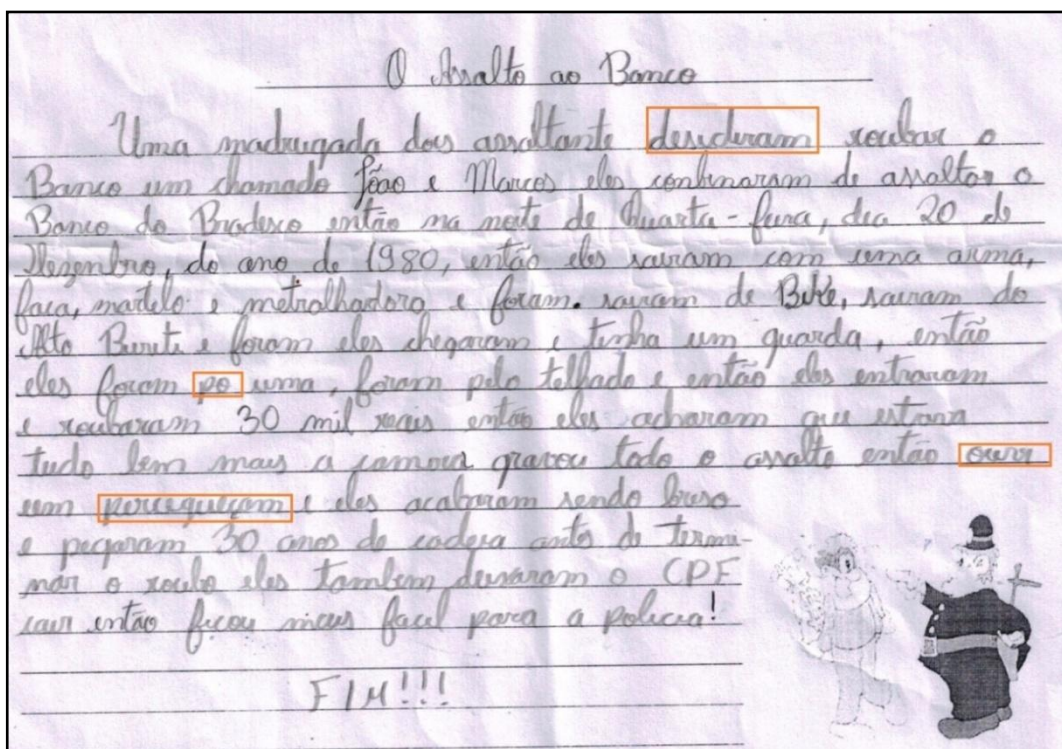 O Assalto ao Banco
Uma madrugada dois assaltante desideram roubar o
Banco um chamado João e Marcos eles conbinaram de assaltar o
Banco do Bradesco então na noite de Quarta-feira, dia 20 de
Dezenbro, do ano de 1980, então eles sairam com uma arma,
faca, martelo e metralhadora e foram. sairam de Bike, sairam do
Alto Burite e foram eles chegaram e tinha um guarda, então
eles foram po uma, foram pelo telhado e então eles entraram
e roubaram 30 mil reais então eles acharam que estava
tudo bem mais a camera gravou todo o assalto então
um e eles acabaram sendo
e pegaram 30 anos de cadeia antes de termi-
nar o roubo eles tambem deixaram o CPF
cair então ficou mais facil para a policia!
FIM!!!